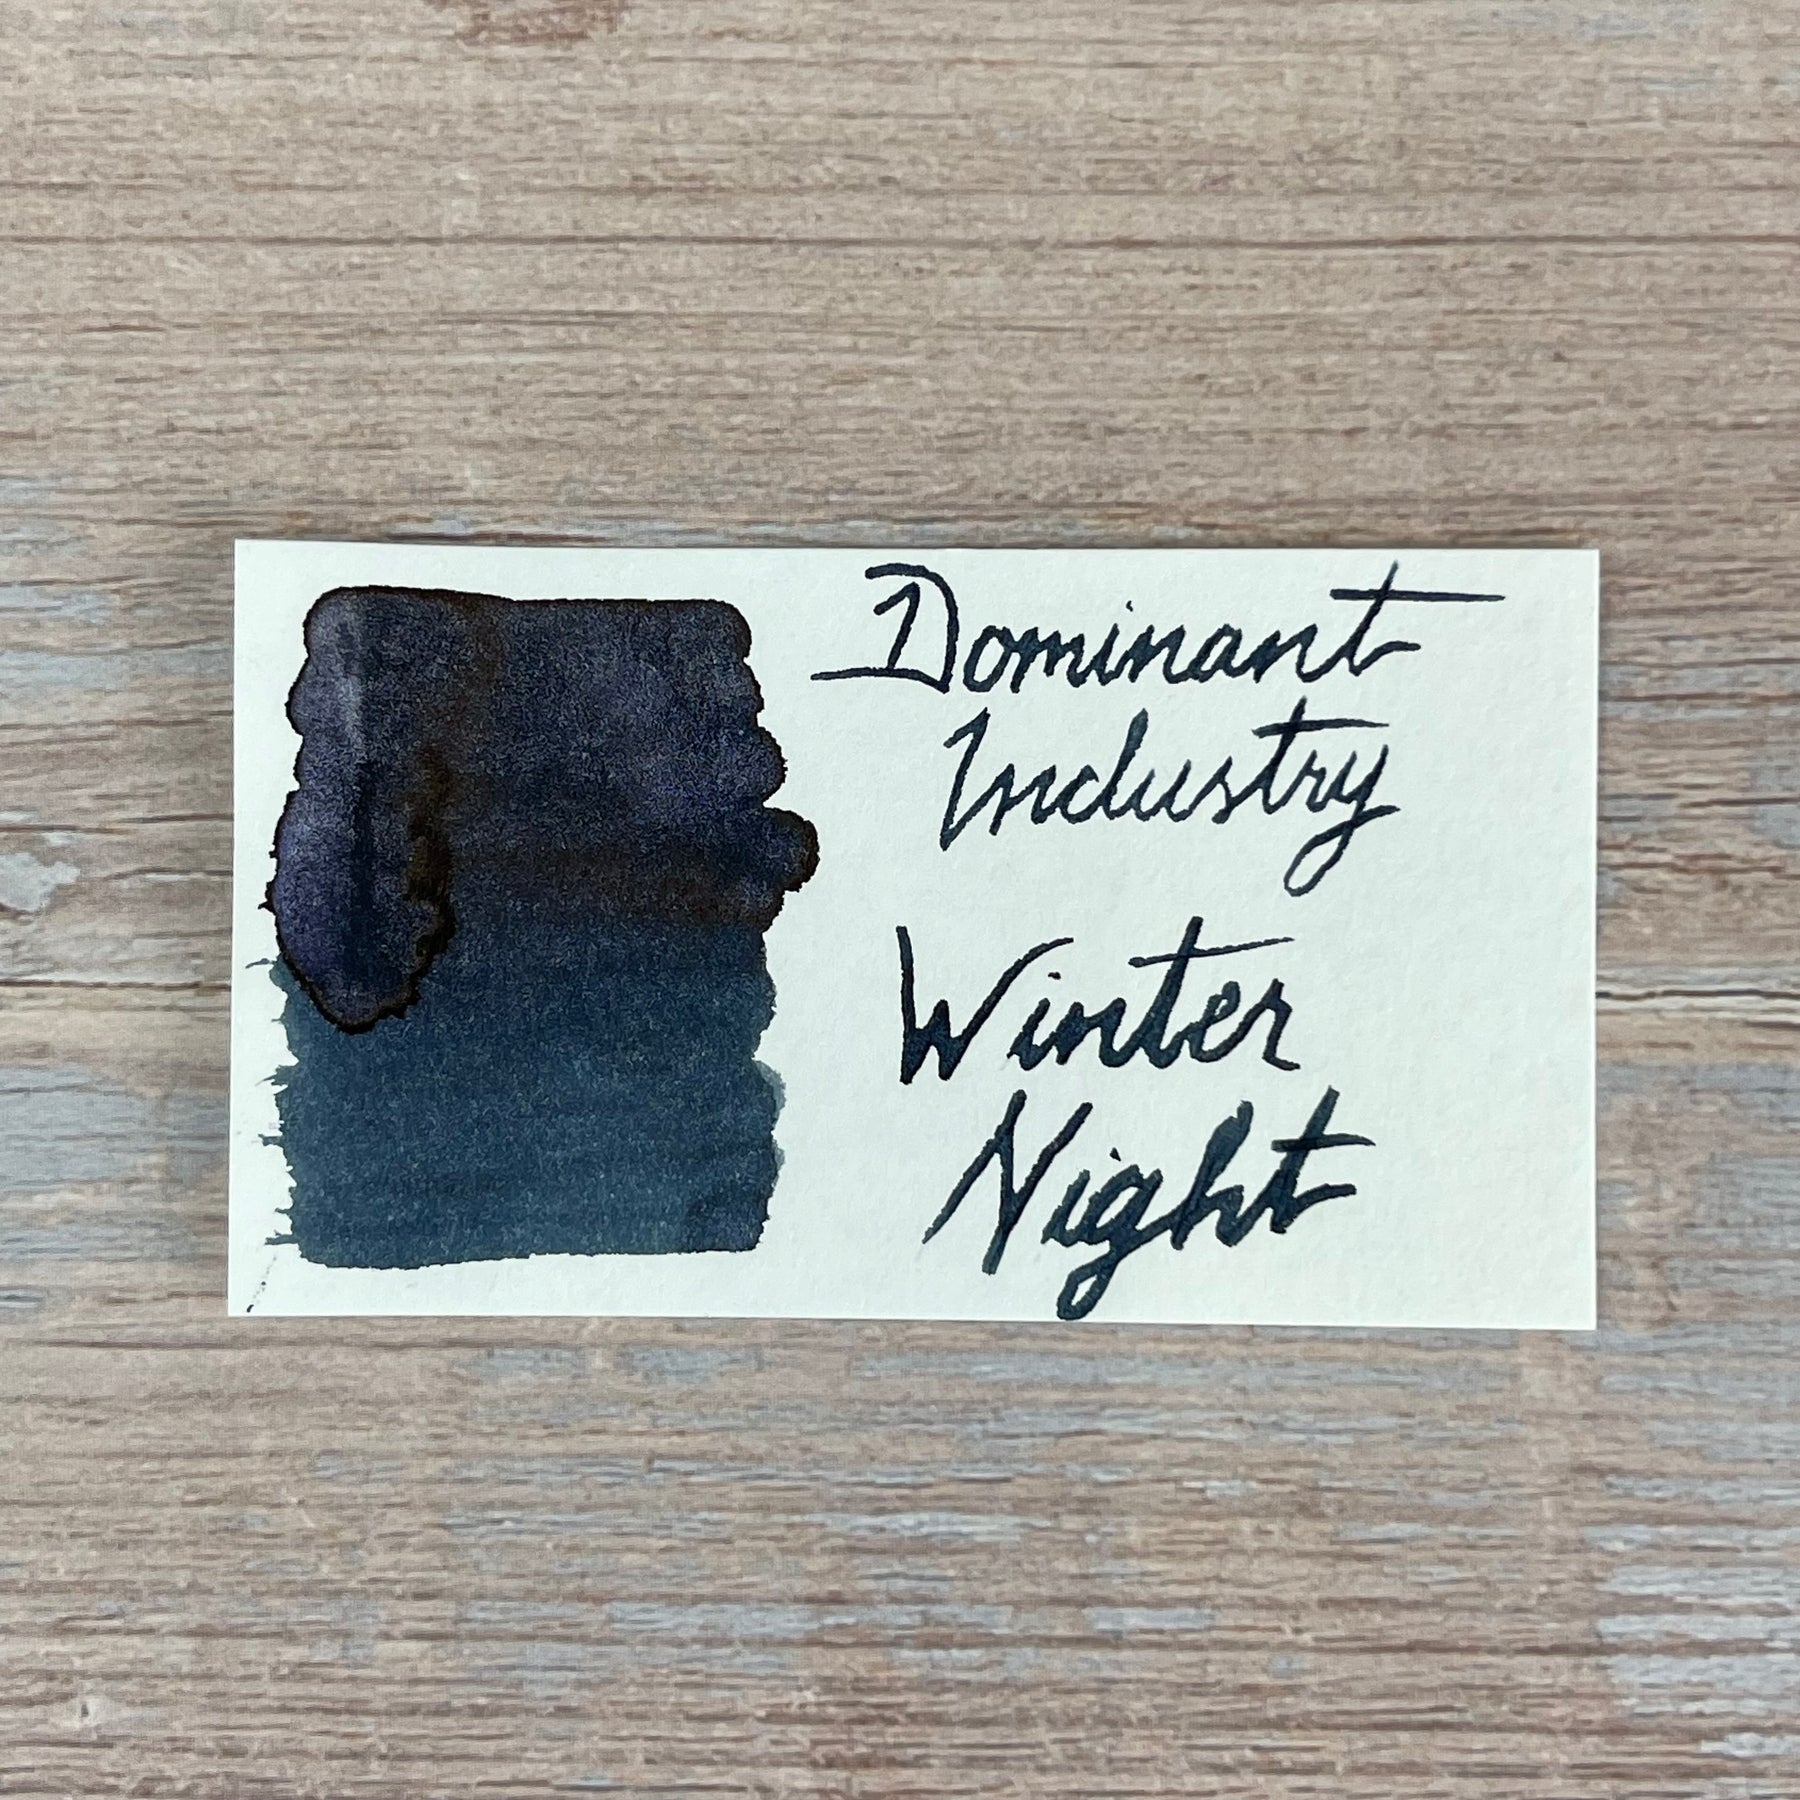 Dominant
Industry
Winter
Night